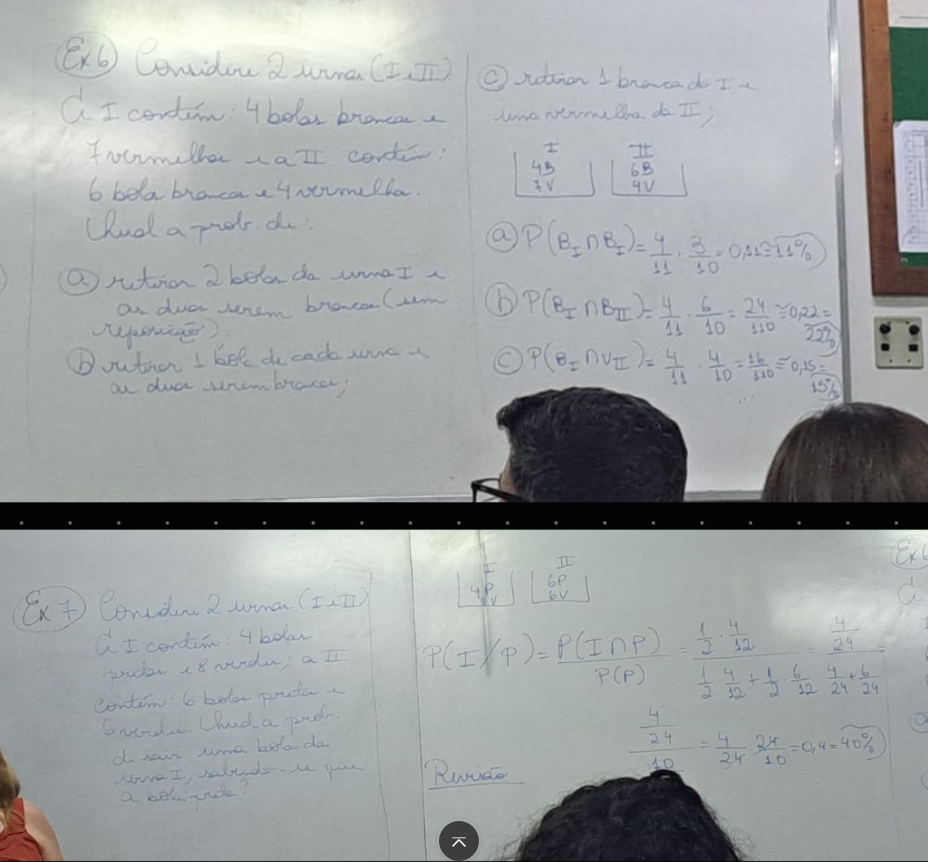 Ex 6) Considere 2 urnas (I e II)
A I contém: 4 bolas brancas e
7 vermelhas e a II contém:
6 bola branca e 4 vermelha.
Qual a prob. de:
a) retirar 2 bolas da urna I e
as duas serem brancas (sem
reposição).
b) retirar 1 bola de cada urna e
as duas serem brancas;
c) retirar 1 branca da I e
uma vermelha da II;
I II
4B 6B
7V 4V
a) P(B_I ∩ B_I) = 4/11 · 3/10 = 0,11 ≅ 11%
b) P(B_I ∩ B_II) = 4/11 · 6/10 = 24/110 ≅ 0,22 =
22%
c) P(B_I ∩ V_II) = 4/11 · 4/10 = 16/110 ≅ 0,15 =
15%
...
Ex 7) Considere 2 urnas (I e II)
A I contém: 4 bolas
pretas e 8 verdes; a II
contém: 6 bolas pretas e
6 verdes. Qual a prob.
de sair uma bola da
urna I, sabendo-se que
a bola preta?
I II
4P 6P
8V 6V
P(I/P) = P(I ∩ P)/P(P) = (1/2 · 4/12)/(1/2 · 4/12 + 1/2 · 6/12) = (4/24)/(4/24 + 6/24) =
(4/24)/10 = 4/24 · 24/10 = 0,4 = 40%
Revisão
Ex 6